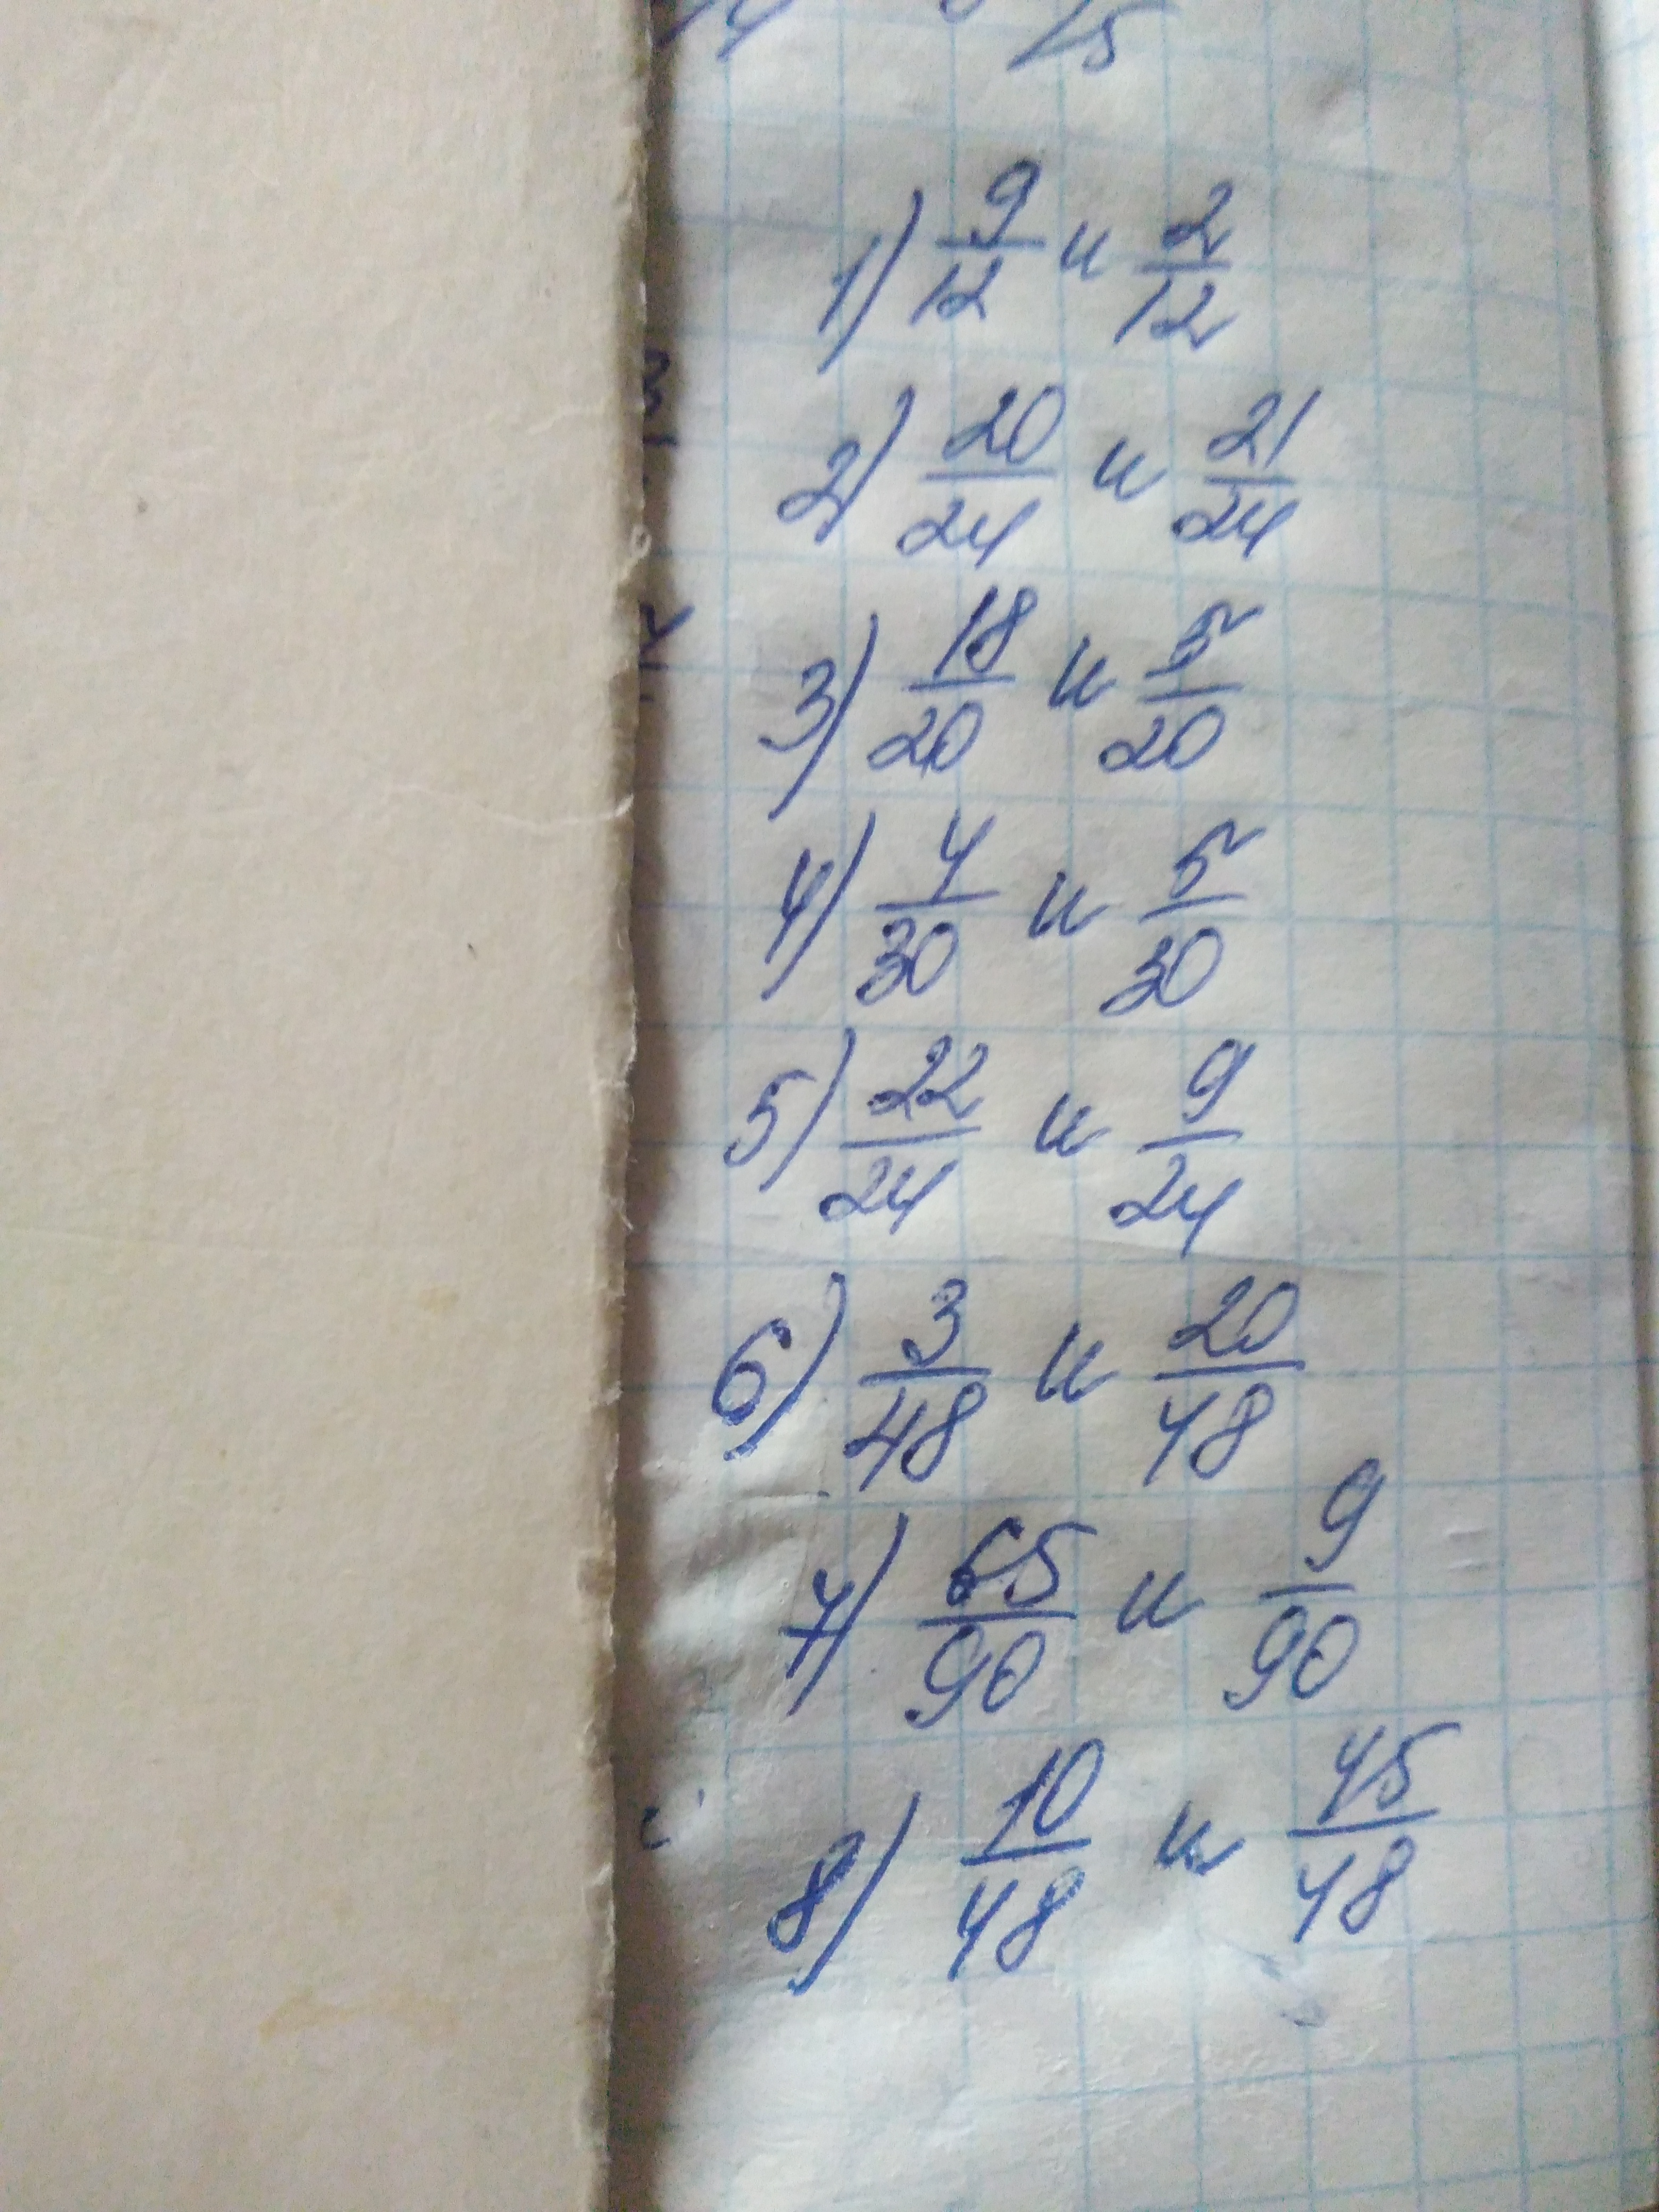 15
1) 9/12 и 2/12
2) 20/24 и 21/24
3) 18/20 и 5/20
4) 4/30 и 5/30
5) 22/24 и 9/24
6) 3/48 и 20/48
7) 65/90 и 9/90
8) 10/48 и 45/48